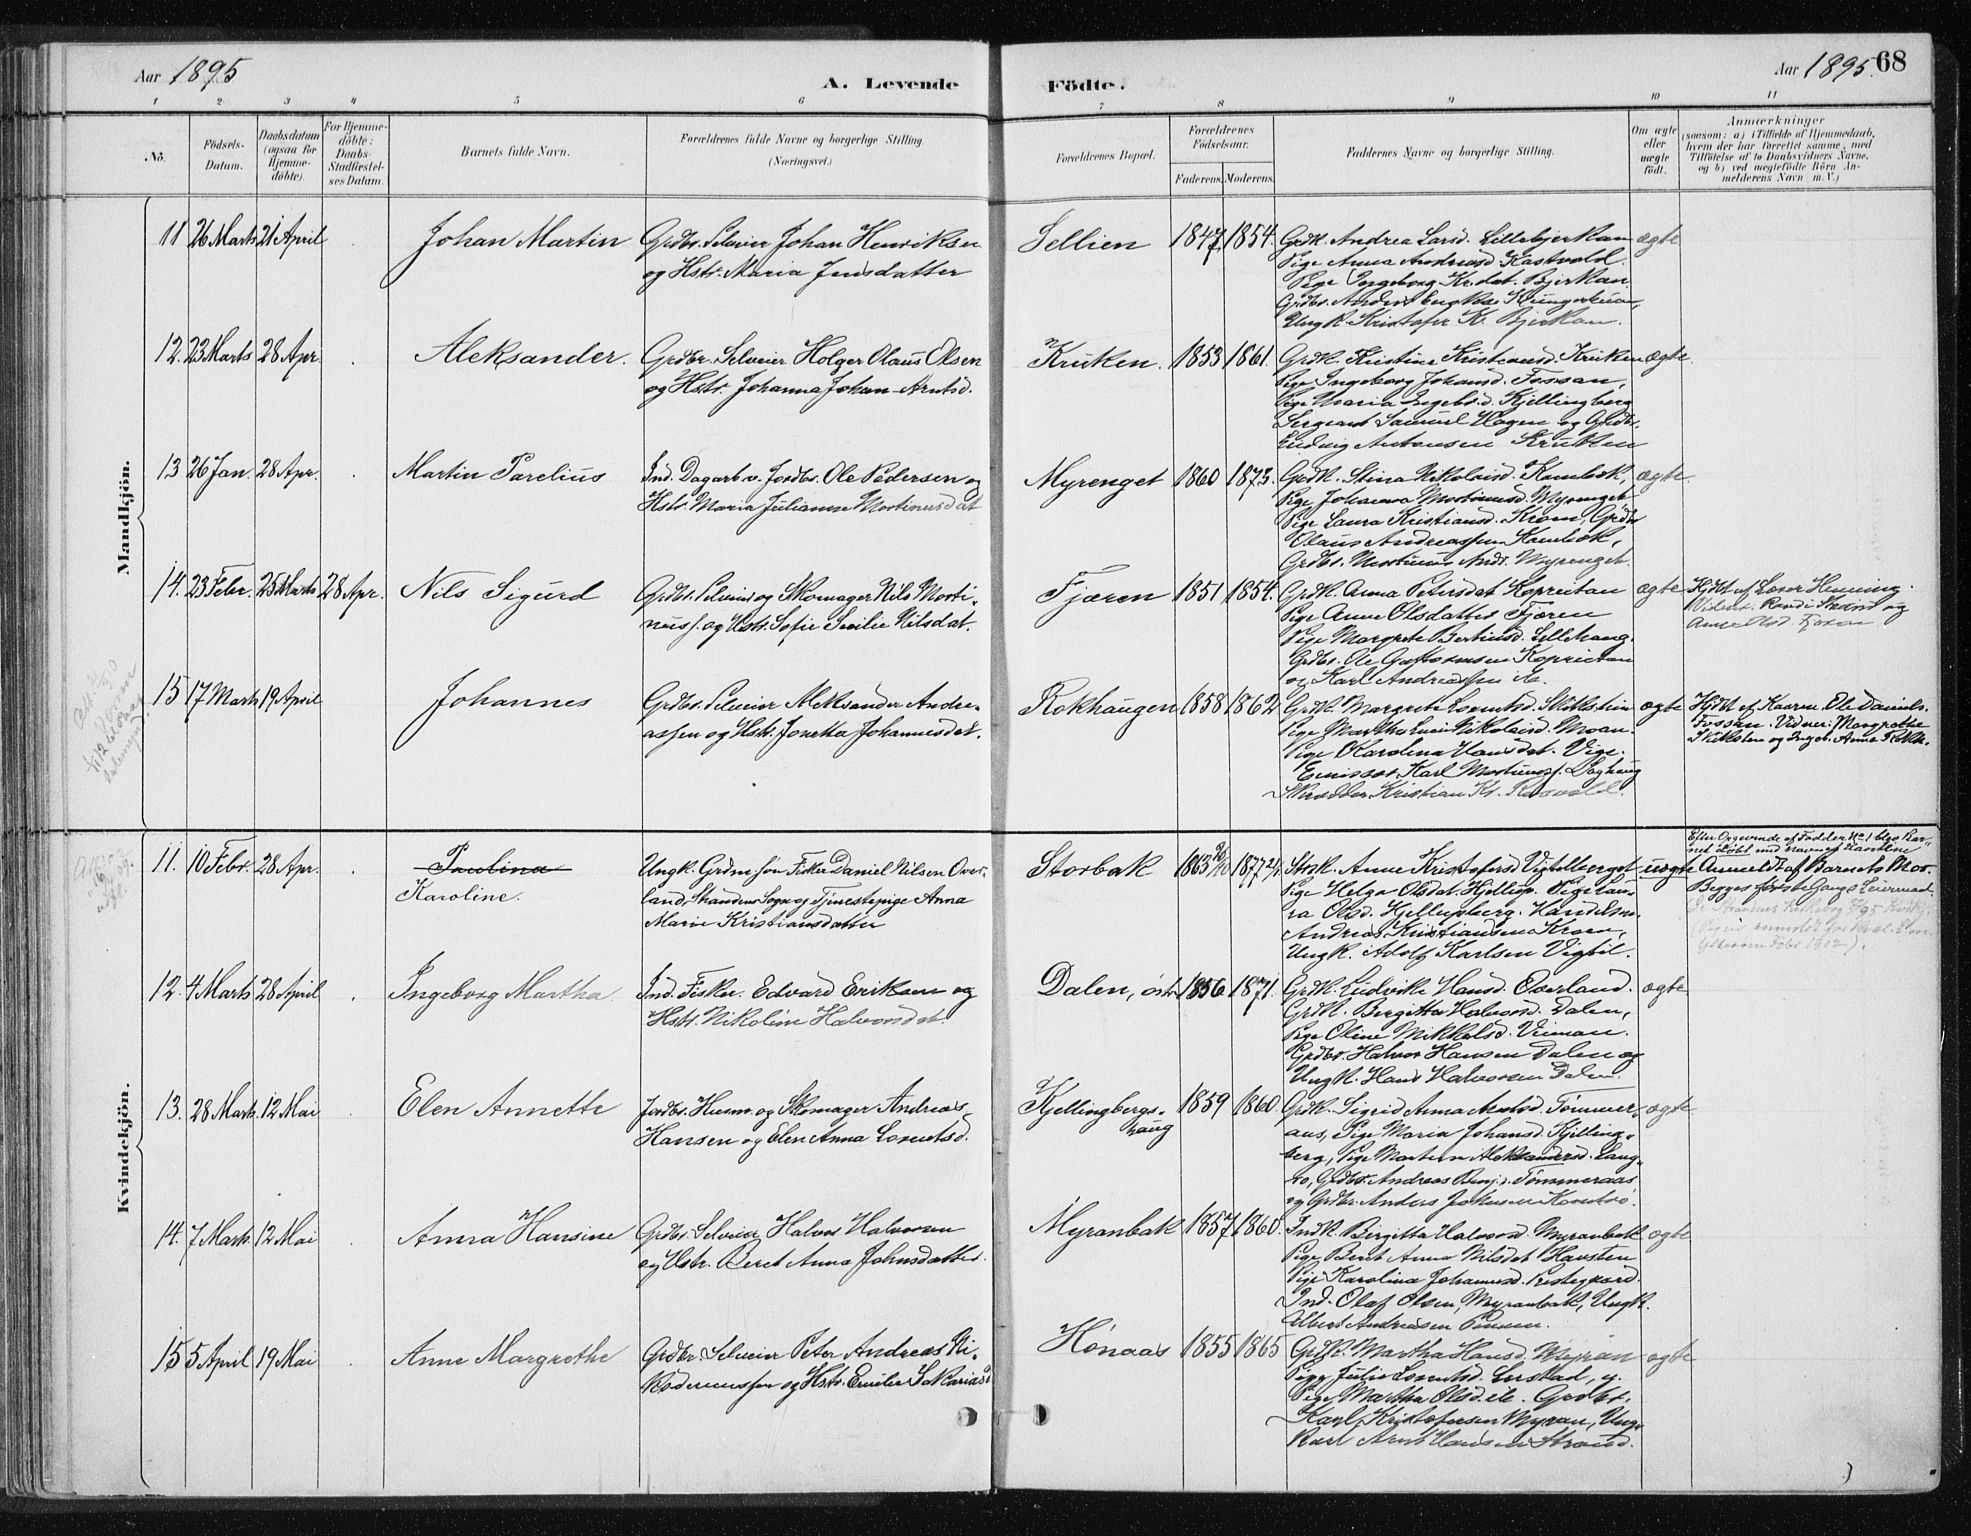 Aar 1895
A. Levende
Födte.
Aar 1895.
68
1 2 3 4 5 6 7 8 9 10 11
No.
Födsels-
Datum.
Daabsdatum
(ogsaa for
Hjemme-
döbte).
For Hjemme-
döbte:
Daabs-
Stadfæstel-
ses Datum.
Barnets fulde Navn.
Forældrenes fulde Navne og borgerlige Stilling
(Næringsvei.)
Forældrenes Bopæl.
Forældrenes
Födselsaar.
Faderens. Moderens.
Faddernes Navne og borgerlige Stilling.
Om ægte
eller
uægte
födt.
Anmærkninger
(saasom: a) i Tilfælde af Hjemmedaab,
hvem der har forrettet samme, med
Tilföielse af to Daabsvidners Navne.
og b) ved uægtefödte Börn An-
melderens Navn m. V.)
Mandkjön.
11 26 Marts 21 April Johan Martin
Grdbr. Selveier Johan Henriksen
og Hstr. Maria Jensdatter
Sellien 1847 1854.
Grdk. Andrea Larsd. Lillebjerkan
Pige Anna Andreasd. Kastvold
Pige Ingeborg Kr.dat. Bjerkan
Grdbr. Anders
Ungk. Kristofer K. Bjerkan.
ægte
12. 23 Marts 28 Apr. Aleksander.
Grdbr. Selveier Holger Olaus Olsen
og Hstr. Johanna Johan-Arntsd.
Kruken. 1853 1861.
Grdk. Kristine Kristensd. Kruken
Pige Ingeborg Johansd. Fossan,
Pige Maria Ingebr.d. Kjellingberg
Sergeant Samuel Hagen og Grdbr.
Ludvig Antonsen Kruken
ægte.
13 26 Jan. 28 Apr. Martin Parelius
Ind. Dagarb. v. Jordbr. Ole Pedersen og
Hstr. Maria Julianne Mortinusdat
Myrenget 1860 1873.
Grdk. Stina Nikolaisd. Kambæk,
Pige Johanna Mortinusd. Myrenget
Pige Laura Kristiansd. Kroen, Grdbr
Olaus Andreassen Kambæk,
Grdbr. Mortinus Andr. Myrenget.
ægte
14. 23 Febr. 25 Marts 28 Apr. Nils Sigurd
Grdbr. Selveier og Skomager Nils Morti-
nuss. og Hstr. Sofie Secilie Nilsdat.
Fjæren 1851 1854.
Grdk. Anna Petersdat Kopreitan
Pige Anne Olsdatter Fjæren
Pige Margrete Bertinsd. Lillehaug.
Grdbr. Ole Kopreitan
og Karl Andreassen
ægte
Hjdbt af Lærer Henning.
Anne Olsd. Fjæren
15 17 Marts 19 April Johannes
Grdbr. Selveier Aleksander Andre-
assen og Hstr. Jonetta Johannesdat.
Rokhaugen 1858 1862
Grdk. Margrete Lorntsd. Skikstein
Pige Martha Nikolaisd. Moan.
Pige Karolina Hansdat. Vige.
Emissær Karl Mortinuss. Saghaug
Skrædder Kristian Kr. Rosvold.
ægte
Hjdbt af Kaarm. Ole Daniels.
Fossan. Vidner: Margrethe
Kvindekjön.
11. 10 Febr. 28 Apr. Paulina
Karoline.
Ungk. Grdm. søn Fisker Daniel Nilsen Over-
land, Stranden Sogn og Tjenestepige Anna
Marie Kristiansdatter
Storbak 1863 1877
Anne Kristofersd. Vigtelberget
Pige Helga Olsdat. Hjellup. Pige Lau-
ra Olsd. Hjellupberg. Handelsm.
Andreas Kristiansen Kroen,
Ungk. Adolf Karlsen Vigtil.
uægte
Efter Opgivende af Fadder No. 1 blev Bar-
net døbt med Navnet Karoline
Anmeldt af Barnets Mor.
Begges første Gangs Leiermaal.
12. 4 Marts 28 April Ingeborg Martha
Ind. Fisker. Edvard Eriksen og
Hstr. Nikoline Halvorsdat.
Dalen, øst 1856 1871.
Grdk. Ludvike Hansd. Overland.
Grdk. Birgitta Halvorsd. Dalen,
Pige Oline Mikkelsd. Viman.
Grdbr. Halvor Hansen Dalen og
Ungk. Hans Halvorsen Dalen.
ægte
13. 28 Marts. 12 Mai Elen Annette
Jordbr. Husm. og Skomager Andreas
Hansen og Elen Anna Lorntsd.
Kjellingbergs-
haug 1859 1860
Grdk. Sigrid Anna Arntsd. Tømmer-
aas, Pige Maria Johansd. Kjelling-
berg, Pige Martin Aleksandersd. Lang-
o, Grdbr. Andreas Benj. Tømmeraas
og Grdbr. Anders Johnsen
ægte
14. 7 Marts. 12 Mai Anna Hansine
Grdbr. Selveier Halvor Halvorsen
og Hstr. Beret Anna Johnsdatter.
Myranbak 1857 1860.
Indk. Birgitta Halvorsd. Myranbak
Pige Beret Anna Nilsdat Havsten
Pige Karolina Johannesd. Prestegaard.
Ind. Olaf Olsen, Myranbak, Ungk.
Albert Andreasen
ægte
15 5 April 19 Mai Anne Margrethe
Grdbr. Selveier Peter Andreas Ni-
kodemussen og Hstr. Emilie Sakariasd
Hønaas 1855 1865
Grdk. Martha Hansd. Myran
Pige Julie Lorntsd. Leristad, og
Pige Martha Olsd. Grdbr.
Karl Kristofersen Myran, Ungk.
Karl Arnt Hansen Strand.
ægte